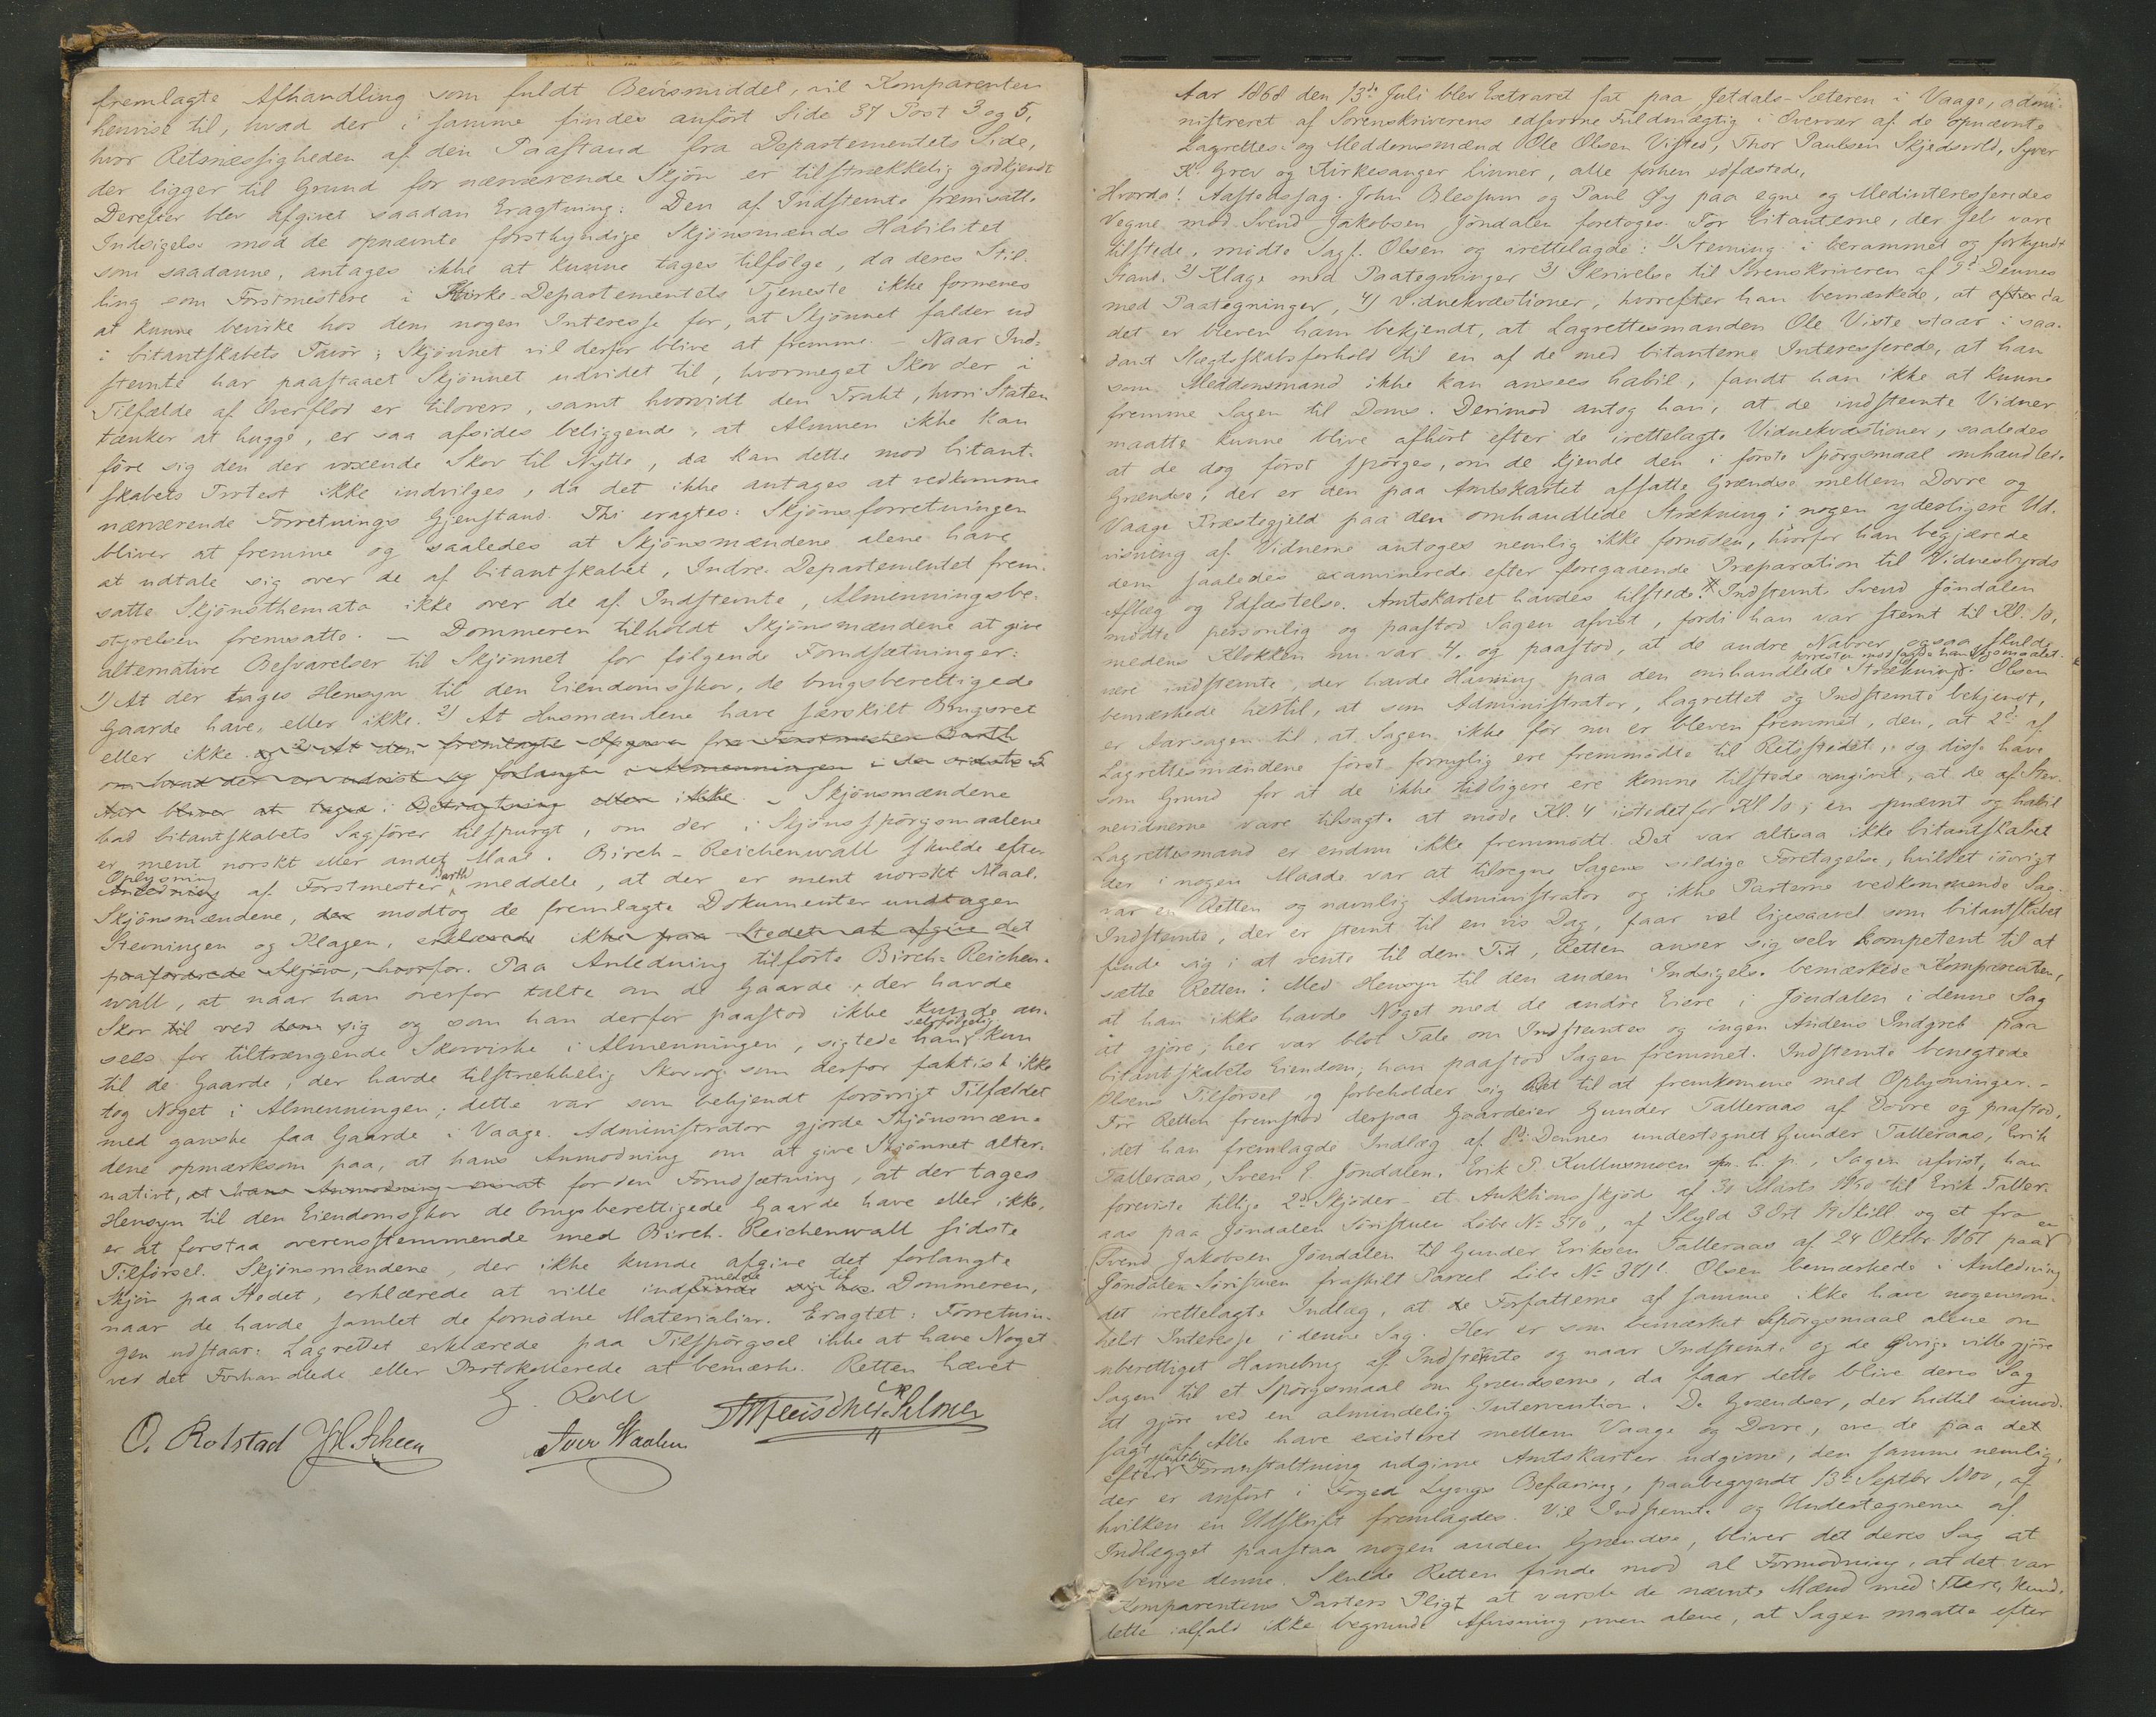 fremlagte Afhandling som fuldt Bevismiddel, vil Komparenten
henvise til, hvad der i samme findes anført Side 37 Post 3 og 5,
hvor Retsmæssigheden af den Paastand fra Departementets Side,
der ligger til Grund for nærværende Skjøn er tilstrækkelig godkjendt
Derefter blev afgivet saadan Eragtning: Den af Indstemte fremsatte
Indsigelse mod de opnævnte forstkyndige Skjönsmænds Habilitet
som saadanne, antages ikke at kunne tages tilfølge, da deres Stil-
ling som Forstmestere i Kirke-Departementets Tjeneste ikke formenes
at kunne bevirke hos dem nogen Interesse for, at Skjønnet falder ud
i Citantskabets Favör; Skjönnet vil derfor blive at fremme. – Naar Ind-
stemte har paastaaet Skjönnet udvidet til, hvormeget Skov der i
Tilfælde af Overflod er tilovers, samt hvorvidt den Trakt, hvori Staten
tænker at hugge, er saa afsides beliggende, at Almuen ikke kan
føre sig den der voxende Skov til Nytte, da kan dette mod Citant-
skabets Protest ikke indvilges, da det ikke antages at vedkomme
nærværende Forretnings Gjenstand. Thi eragtes: Skjönsforretningen
bliver at fremme og saaledes at Skjönsmændene alene have
at udtale sig over de af Citantskabet, Indre-Departementet frem-
satte Skjönsthemata ikke over de af Indstemte, Almenningsbe-
styrelsen fremsatte. – Dommeren tilholdt Skjönsmændene at give
alternative Besvarelser til Skjönnet for følgende Forudsætninger:
1) At der tages Hensyn til den Eiendomsskov, de brugsberettigede
Gaarde have, eller ikke. 2) At Husmændene have særskilt Brugsret
eller ikke og 3) At den fremlagte Opgave fra Forstmester Barth
om hvad der er udvist og forlangt i Almenningen i de sidste 5
Aar bliver at tages i Betragtning eller ikke. – Skjönsmændene
bad Citantskabets Sagfører tilspurgt, om der i Skjønsspørgsmaalene
er ment norskt eller andet Maal. Birch-Reichenwall skulde efter
Oplysning
Anledning af Forstmester Barth meddele, at der er ment norskt Maal.
Skjönsmændene, der modtog de fremlagte Dokumenter undtagen
Stevningen og Klagen, erklærede ikke paa Stedet at afgive det
paafordrede Skjön, hvorfor. Paa Anledning tilførte Birch-Reichen-
wall, at naar han overfor talte om de Gaarde, der havde
Skov til ved dem sig og som han derfor paastod ikke kunde an-
sees for tiltrængende Skovvirke i Almenningen, sigtede han selvfølgelig kun
til de Gaarde, der havde tilstrækkelig Skov og som derfor faktisk ikke
tog Noget i Almenningen; dette var som bekjendt forövrigt Tilfældet
med ganske faa Gaarde i Vaage. Administrator gjorde Skjönsmæn-
dene opmærksom paa, at hans Anmodning om at give Skjönnet alter-
nativt, at hans Anmodning for den Forudsætning, at der tages
Hensyn til den Eiendomsskov de brugsberettigede Gaarde have eller ikke,
er at forstaa overensstemmende med Birch-Reichenwall sidste
Tilførsel. Skjönsmændene, der ikke kunde afgive det forlangte
Skjön paa Stedet, erklærede at ville indmelde til Dommeren,
naar de havde samlet de fornødne Materialier. Eragtet: Forretnin-
gen udstaar. Lagrettet erklærede paa Tilspörgsel ikke at have Noget
ved det Forhandlede eller Protokollerede at bemærke. Retten hævet
O. Rolstad
Iver Waalen
Aar 1868 den 13de Juli blev Extraret sat paa Jetdals-Sæteren i Vaage, admi-
nistreret af Sorenskriverens edsvorne Fuldmægtig i Overvær af de opnævnte
Lagrettes- og Meddomsmænd Ole Olsen Visted, Thor Paulsen Skjedsvold, Syver
K. Grev og Kirkesanger Linner, alle forhen edfæstede,
Hvorda! Aastedssag. John Blessum og Paul Øy paa egne og Medinteresseredes
Vegne mod Svend Jakobsen Jöndalen foretoges. For Citanterne, der selv vare
tilstede, mödte Sagf. Olsen og irettelagde: 1) Stevning i berammet og forkyndt
Stand. 2) Klage med Paategninger 3) Skrivelse til Sorenskriveren af 9d Dennes
med Paategninger, 4) Vidnekvæstioner, hvorefter han bemærkede, at efter da
det er bleven ham bekjendt, at Lagrettesmanden Ole Viste staar i saa-
dant Slægtskabsforhold til en af de med Citanterne Interesserede, at han
som Meddomsmand ikke kan ansees habil, fandt han ikke at kunne
fremme Sagen til Doms. Derimod antog han, at de indstemte Vidner
maatte kunne blive afhört efter de irettelagte Vidnekvæstioner, saaledes
at de dog först spörges, om de kjende den i förste Spörgsmaal omhandlede
Grændse, der er den paa Amtskartet afsatte Grændse mellem Dovre og
Vaage Præstegjeld paa den omhandlede Strækning; nogen yderligere Ud-
visning af Vidnerne antoges nemlig ikke fornöden, hvorfor han begjærede
dem saaledes examinerede efter foregaaende Præparation til Vidnesbyrds
Aflæg og Edfæstelse. Amtskartet havdes tilstede. Indstemte Svend Jöndalen
mödte personlig og paastod Sagen afvist, fordi han var stemt til Kl. 10,
medens Klokken nu var 4, og paastod, at de andre Naboer ogsaa skulde
være indstemte, der havde Havning paa den omhandlede Strækning. Olsen
bemærkede hertil, at som Administrator, Lagrettet og Indstemte bekjendt,
er Aarsagen til at Sagen ikke för nu er bleven fremmet, den, at 2de af
Lagrettesmændene först fornylig ere fremmödte til Retsstedet, og disse have
som Grund for at de ikke tidligere ere komne tilstede angivet, at de af Stev-
nevidnerne vare tilsagte at möde Kl. 4 istedetfor Kl. 10; en opnævnt og habil
Lagrettesmand er endnu ikke fremmödt. Det var altsaa ikke Citantskabet
der i nogen Maade var at tilregne Sagens sildige Foretagelse, hvilket iövrigt
var en Retten og navnlig Administrator og ikke Parterne vedkommende Sag.
Indstemte, der er stemt til en vis Dag, faar vel ligesaavel som Citantskabet
finde sig i at vente til den Tid, Retten anser sig selv kompetent til at
sætte Retten. Med Hensyn til den anden Indsigelse bemærkede Komparenten,
at han ikke havde Noget med de andre Eiere i Jöndalen i denne Sag
at gjöre; her var blot Tale om Indstemtes og ingen Andens Indgreb paa
Citantskabets Eiendom; han paastod Sagen fremmet. Indstemte benegtede
Olsens Tilförsel og forbeholder sig Ret til at fremkomme med Oplysninger. –
For Retten fremstod derpaa Gaardeier Gunder Talleraas af Dovre og paastod,
idet han fremlagde Indlæg af 8de Dennes undertegnet Gunder Talleraas, Erik
Talleraas, Sveen E. Jöndalen, Erik P. Kullusmoen m. h. p., Sagen afvist, han
foreviste tillige 2de Skjöder – et Auktionsskjöd af 30 Marts 1850 til Erik Taller-
aas paa Jöndalen Söristuen Löbe No 370, af Skyld 3 Ort 19 Skill og et fra
Svend Jakobsen Jöndalen til Gunder Eriksen Talleraas af 24 Oktbr. 1861 paa en
Jöndalen Söristuen fraskilt Parcel Löbe No 371 b. Olsen bemærkede i Anledning
det irettelagte Indlæg, at de Forfatterne af samme ikke have nogensom-
helst Interesse i denne Sag. Her er som bemærket Spörgsmaal alene om
uberettiget Havnebrug af Indstemte og naar Indstemte og de Övrige ville gjöre
Sagen til et Spörgsmaal om Grændserne, da faar dette blive deres Sag
at gjöre ved en almindelig Intervention. De Grændser, der hidtil uimod-
sagt af Alle have existeret mellem Vaage og Dovre, ere de paa det
efter offentlig Foranstaltning udgivne Amtskarter udgivne, den samme nemlig,
der er anfört i Foged Lyngs Befaring, paabegyndt 13de Septbr 1800, af
hvilken en Udskrift fremlagdes. Vil Indstemte og Undertegnerne af
Indlægget paastaa nogen anden Grændse, bliver det deres Sag at
bevise denne. Skulde Retten finde mod al Formodning, at det var
Komparentens Parters Pligt at varsle de nævnte Mænd med Flere, kunde
dette ialfald ikke begrunde Afvisning, men alene, at Sagen maatte efter